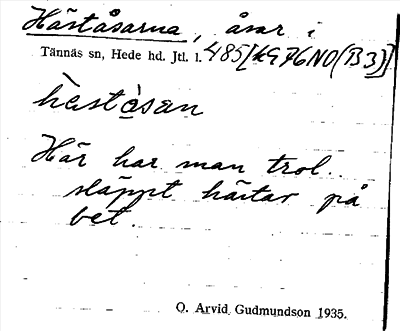 Häståsarna, åsar i
Tännäs sn, Hede hd. Jtl. l. 485[KG76NO(B3)]
hèstå̀san
Här har man trol.
släppt hästar på
bet.
O. Arvid Gudmundson 1935.